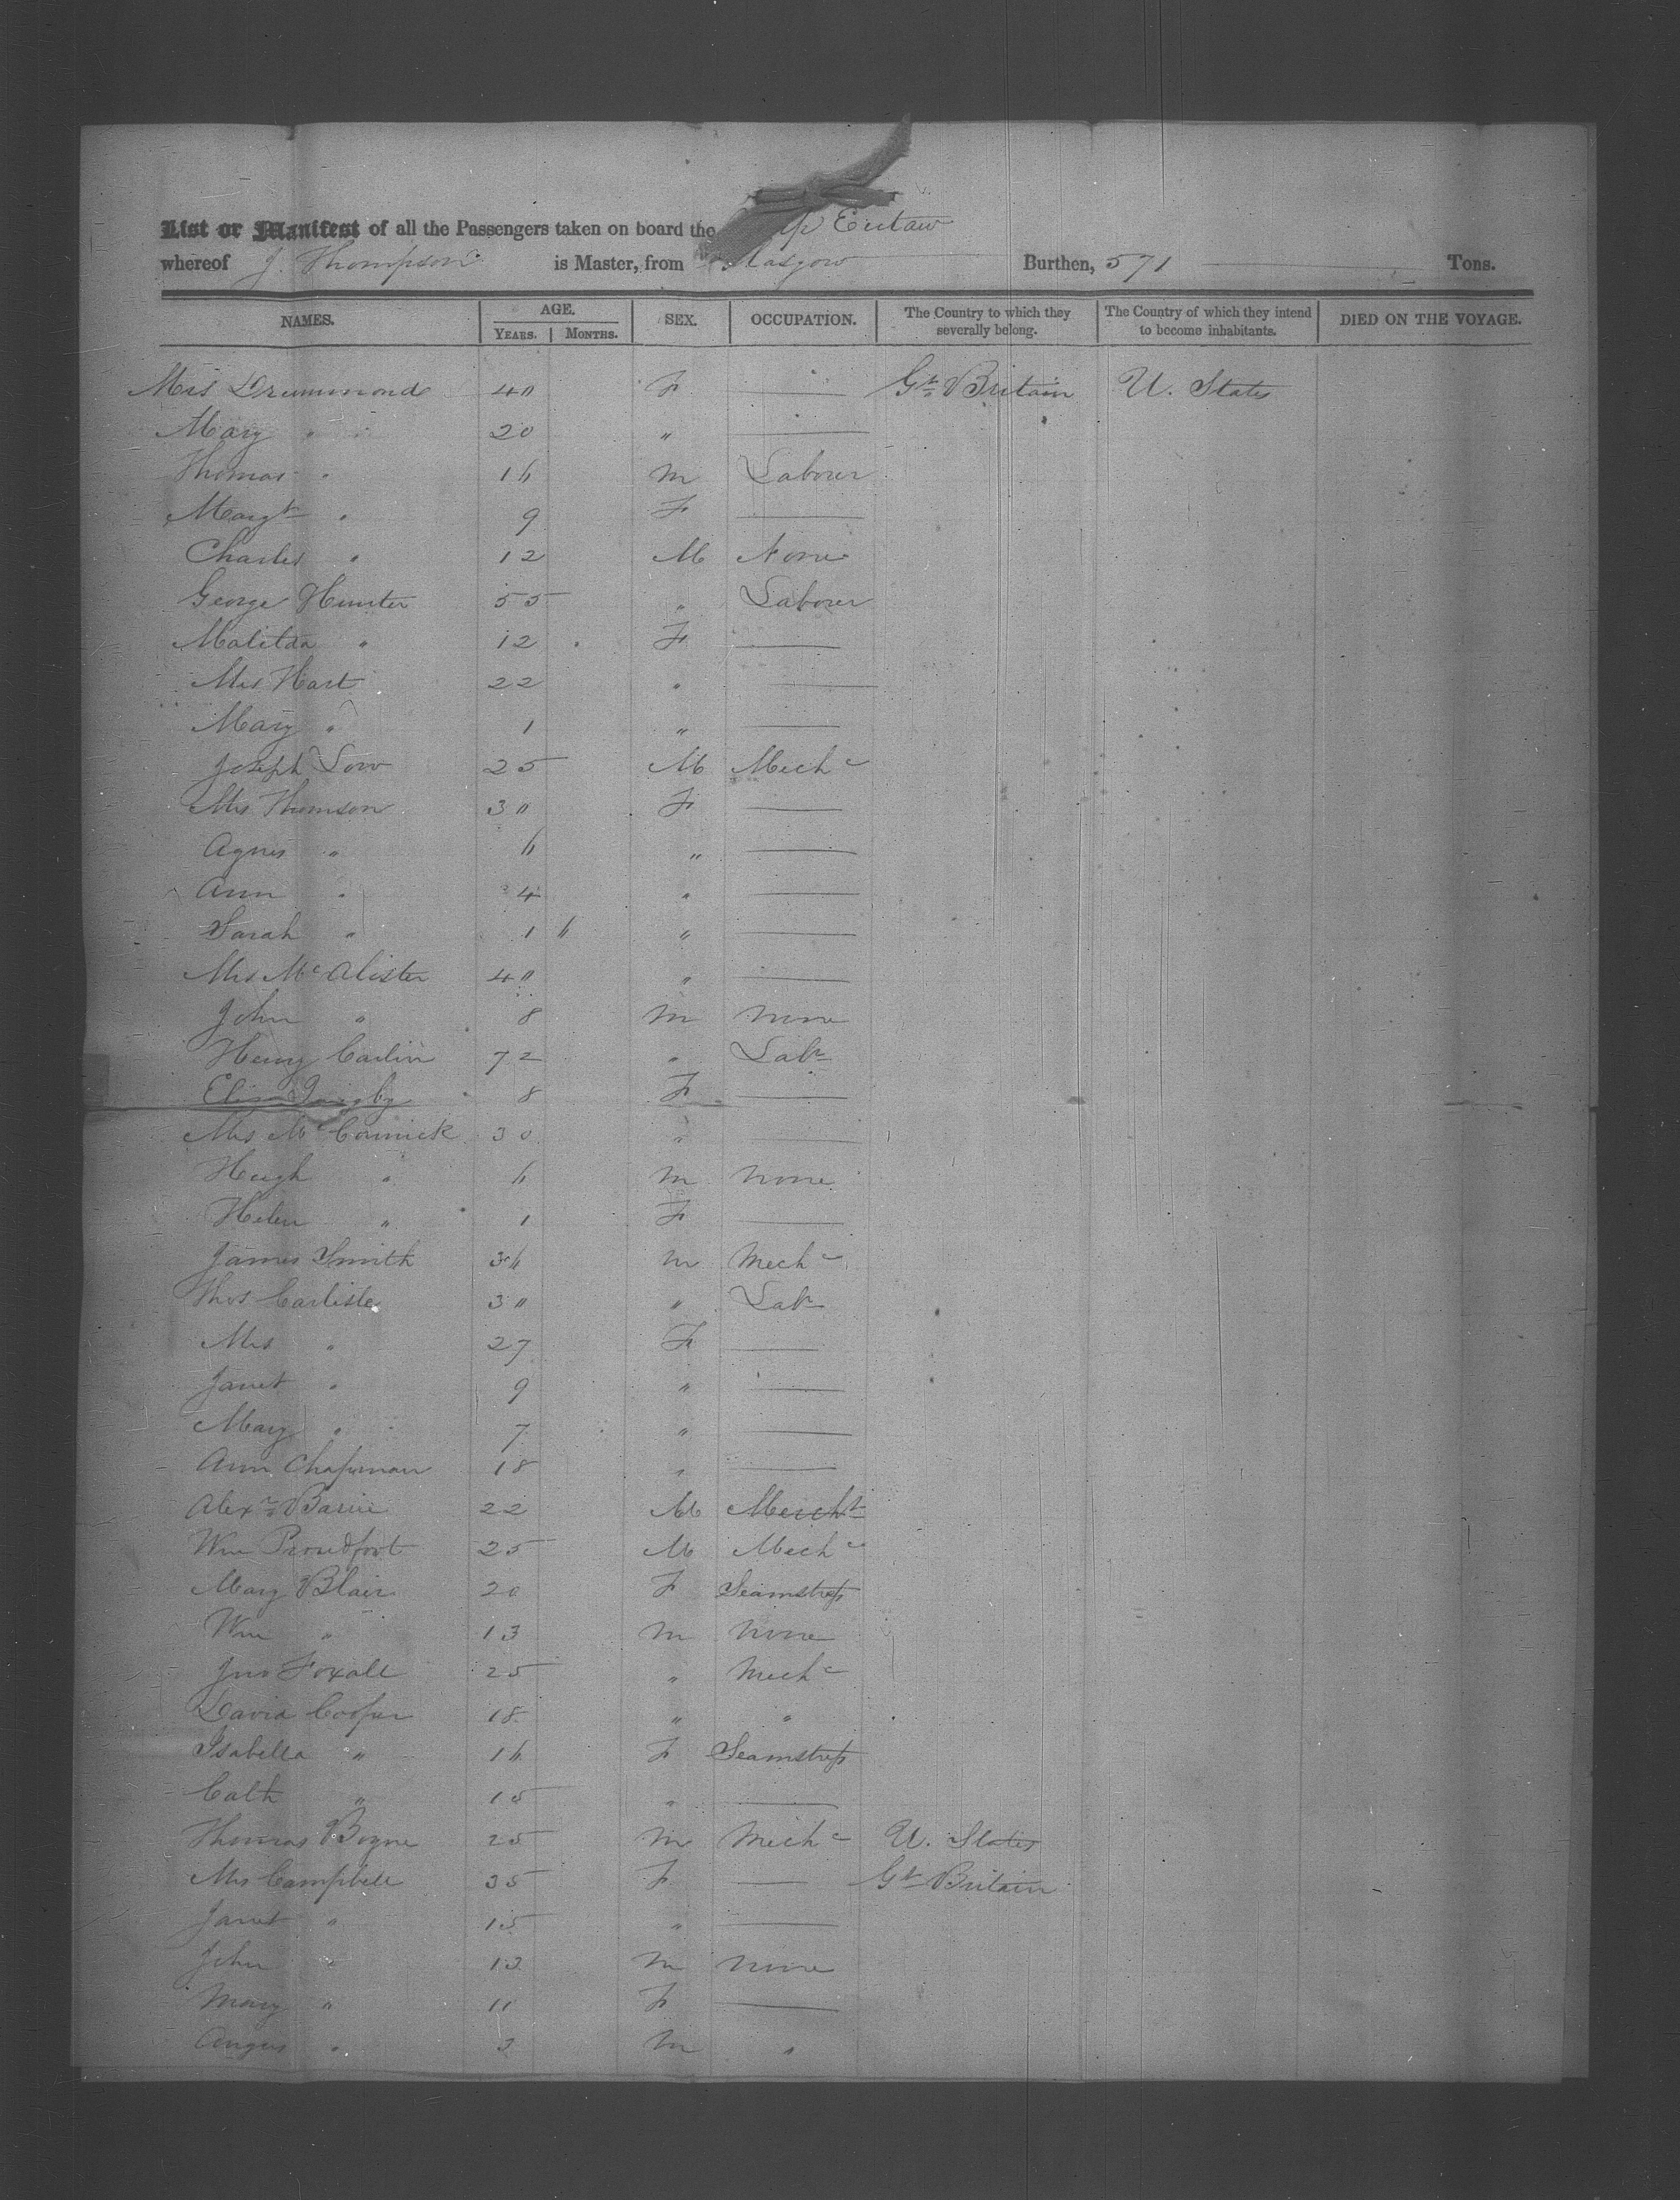 List or Manifest of all the Passengers taken on board the Eutaw
whereof J. Thompson is Master, from Glasgow Burthen, 571 Tons.
NAMES. AGE. YEARS. MONTHS. SEX. OCCUPATION. The Country to which they severally belong. The Country of which they intend to become inhabitants. DIED ON THE VOYAGE.
Mrs Drummond 40 F — Gt Britain U. States
Mary " 20 " —
Thomas " 16 M Laborer
Margt " 9 F —
Charles " 12 M None
George Hunter 55 " Laborer
Malitda " 12 F —
Mrs Hart 22 " —
Mary " 1 " —
Joseph Low 25 M Mechc
Mrs Thomson 30 F —
Agnes " 6 " —
Ann " 4 " —
Sarah " 1 6 " —
Mrs McAlister 40 " —
John " 8 M None
Henry Carlin 72 " Labr
Eliza 8 F —
Mrs McCormick 30 " —
Hugh " 6 M None
Helen " 1 F —
James Smith 36 M Mechc
Thos Carlisle 30 " Labr
Mrs " 27 F —
Janet " 9 " —
Mary " 7 " —
Ann Chapman 18 " —
Alexr Barrie 22 M Mercht
Wm Proudfoot 25 M Mechc
Mary Blair 20 F Seamstress
Wm " 13 M None
Jno Foxall 25 " Mechc
David Cooper 18 " "
Isabella " 16 F Seamstress
Cath " 15 " —
Thomas Boyne 25 M Mechc U. States
Mrs Campbell 35 F — Gt Britain
Janet " 15 " —
John " 13 M None
Mary " 11 F —
Angus " 2 M "